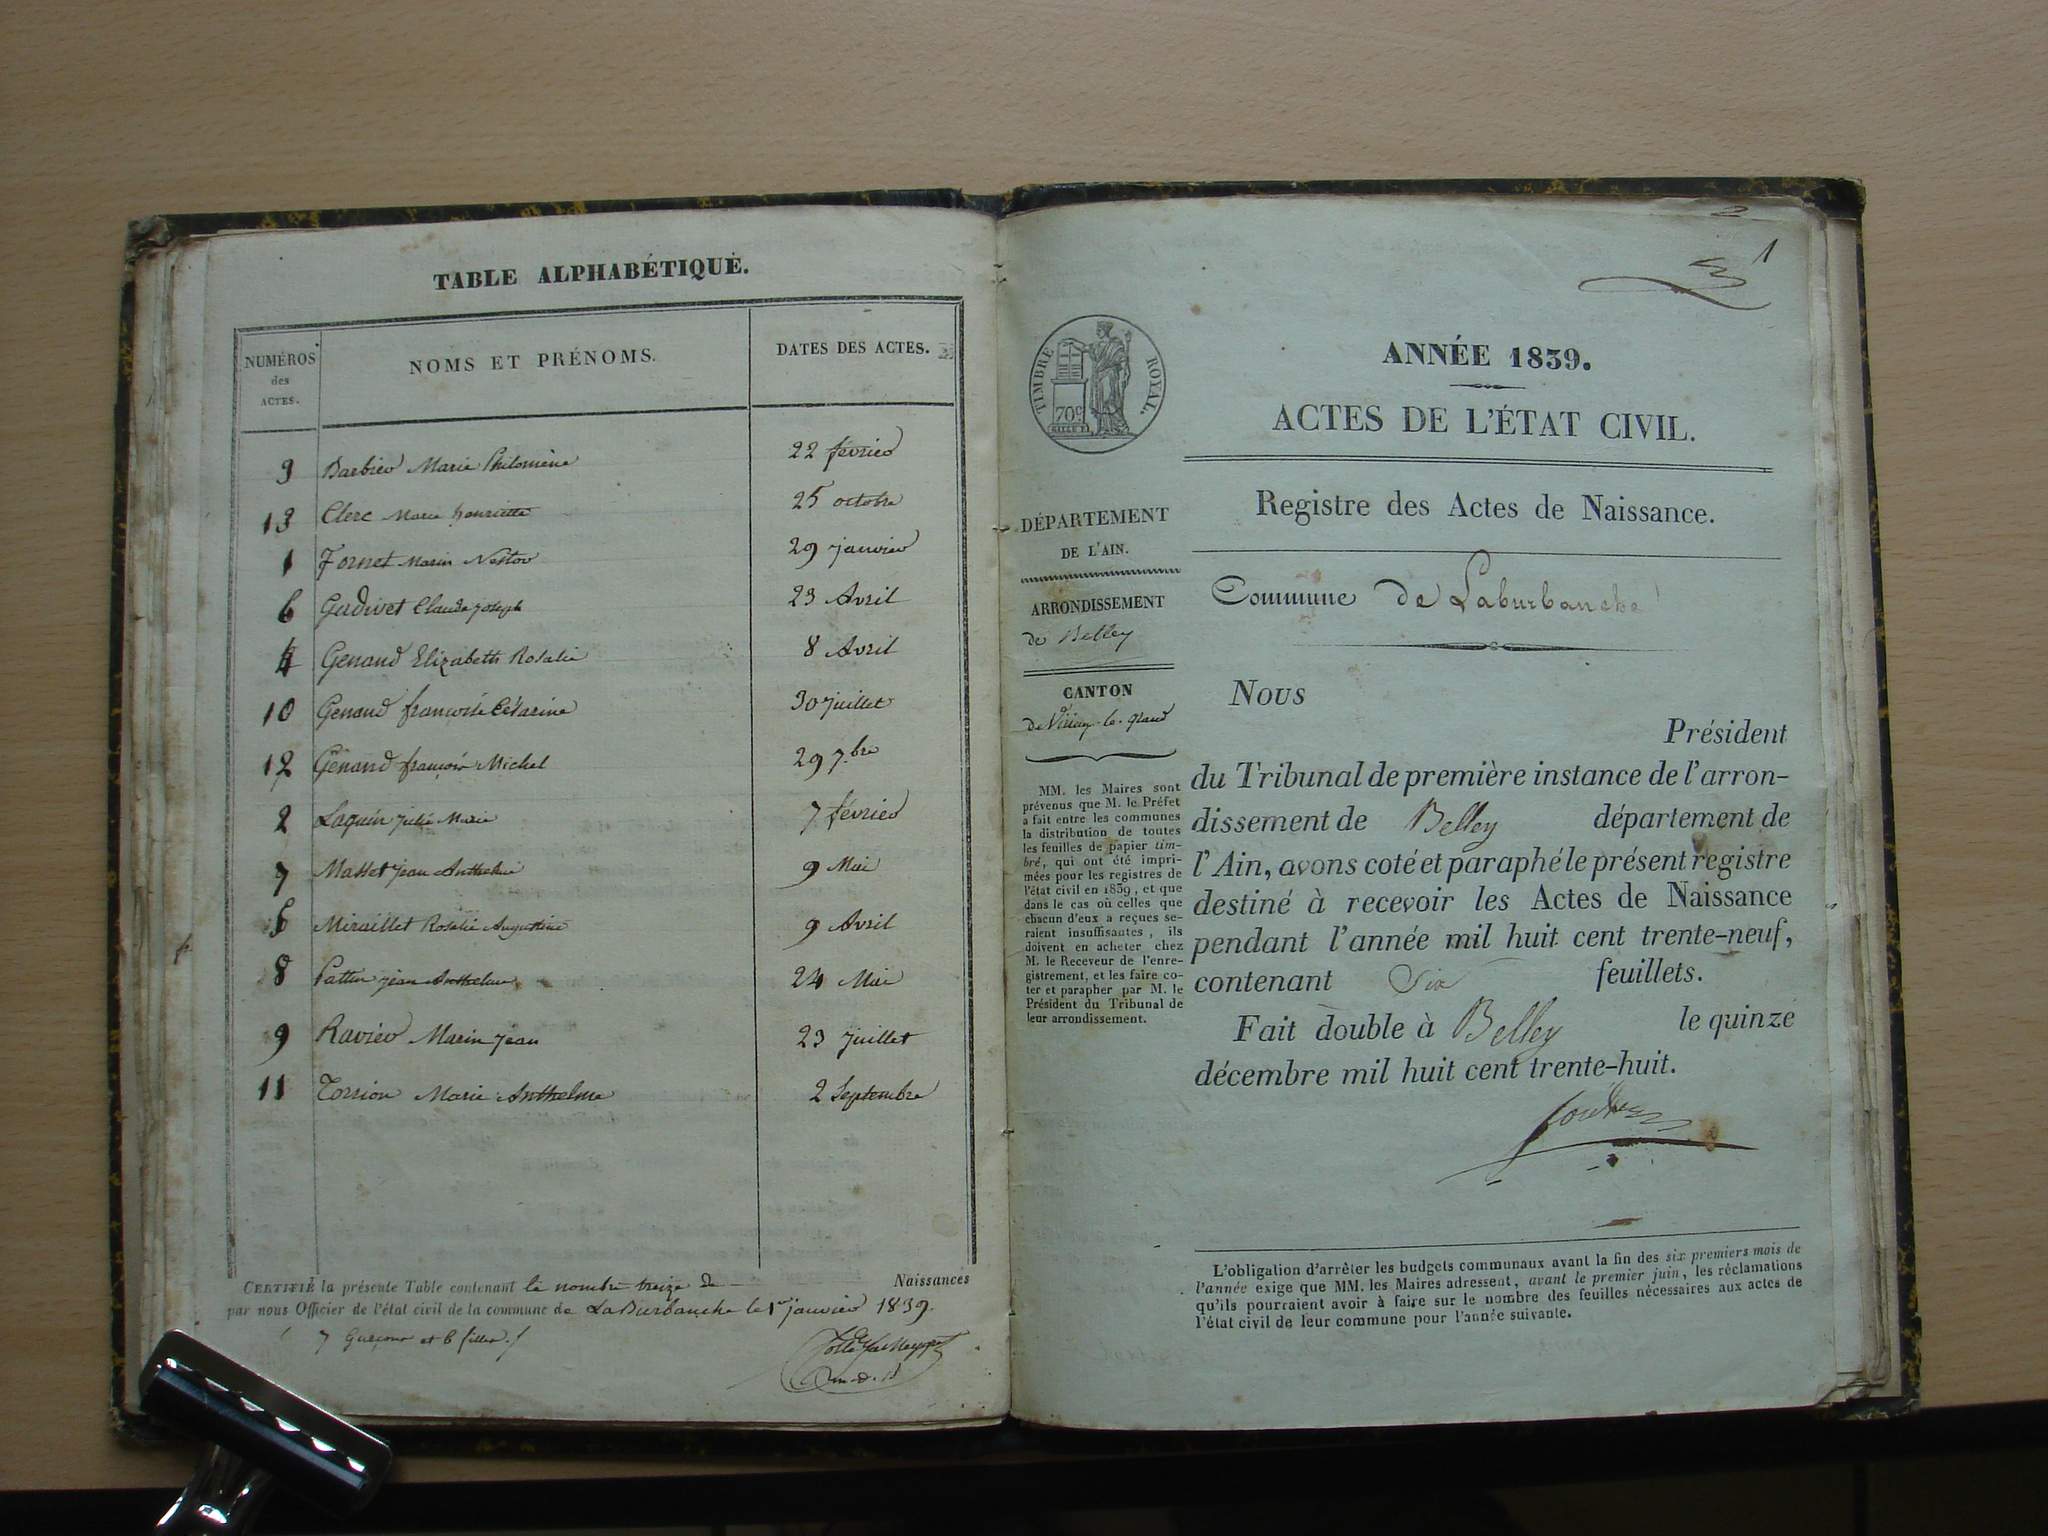 TABLE ALPHABÉTIQUE.
NUMÉROS des ACTES. NOMS ET PRÉNOMS. DATES DES ACTES.
3 Barbier Marie Philomène 22 février
13 Clerc Marie henriette 25 octobre
1 Fornet Marin Nestor 29 janvier
6 Gudivet Claude joseph 23 Avril
4 Genand Elizabeth Rosalie 8 Avril
10 Genand françoise Césarine 30 juillet
12 Génand françois Michel 29 7.bre
2 Laguin julie Marie 7 février
7 Masset jean Anthelme 9 Mai
5 Miraillet Rosalie Augustine 9 Avril
8 jean Anthelme 24 Mai
9 Ravier Marin jean 23 juillet
11 Torrion Marie Anthelme 2 Septembre
CERTIFIÉ la présente Table contenant le nombre treize de Naissances
par nous Officier de l'état civil de la commune de LaBurbanche le 1er janvier 1839.
7 Garçons et 6 filles
2
1
TIMBRE ROYAL.
70c
ANNÉE 1839.
ACTES DE L'ÉTAT CIVIL.
Registre des Actes de Naissance.
DÉPARTEMENT
DE L'AIN.
ARRONDISSEMENT
de Belley
CANTON
de Virieu-le-grand
MM. les Maires sont
prévenus que M. le Préfet
a fait entre les communes
la distribution de toutes
les feuilles de papier tim-
bré, qui ont été impri-
mées pour les registres de
l'état civil en 1839, et que
dans le cas où celles que
chacun d'eux a reçues se-
raient insuffisantes, ils
doivent en acheter chez
M. le Receveur de l'enre-
gistrement, et les faire co-
ter et parapher par M. le
Président du Tribunal de
leur arrondissement.
Commune de Laburbanche
Nous
Président
du Tribunal de première instance de l'arron-
dissement de Belley département de
l'Ain, avons coté et paraphé le présent registre
destiné à recevoir les Actes de Naissance
pendant l'année mil huit cent trente-neuf,
contenant Six feuillets.
Fait double à Belley le quinze
décembre mil huit cent trente-huit.
L'obligation d'arrêter les budgets communaux avant la fin des six premiers mois de
l'année exige que MM. les Maires adressent, avant le premier juin, les réclamations
qu'ils pourraient avoir à faire sur le nombre des feuilles nécessaires aux actes de
l'état civil de leur commune pour l'année suivante.